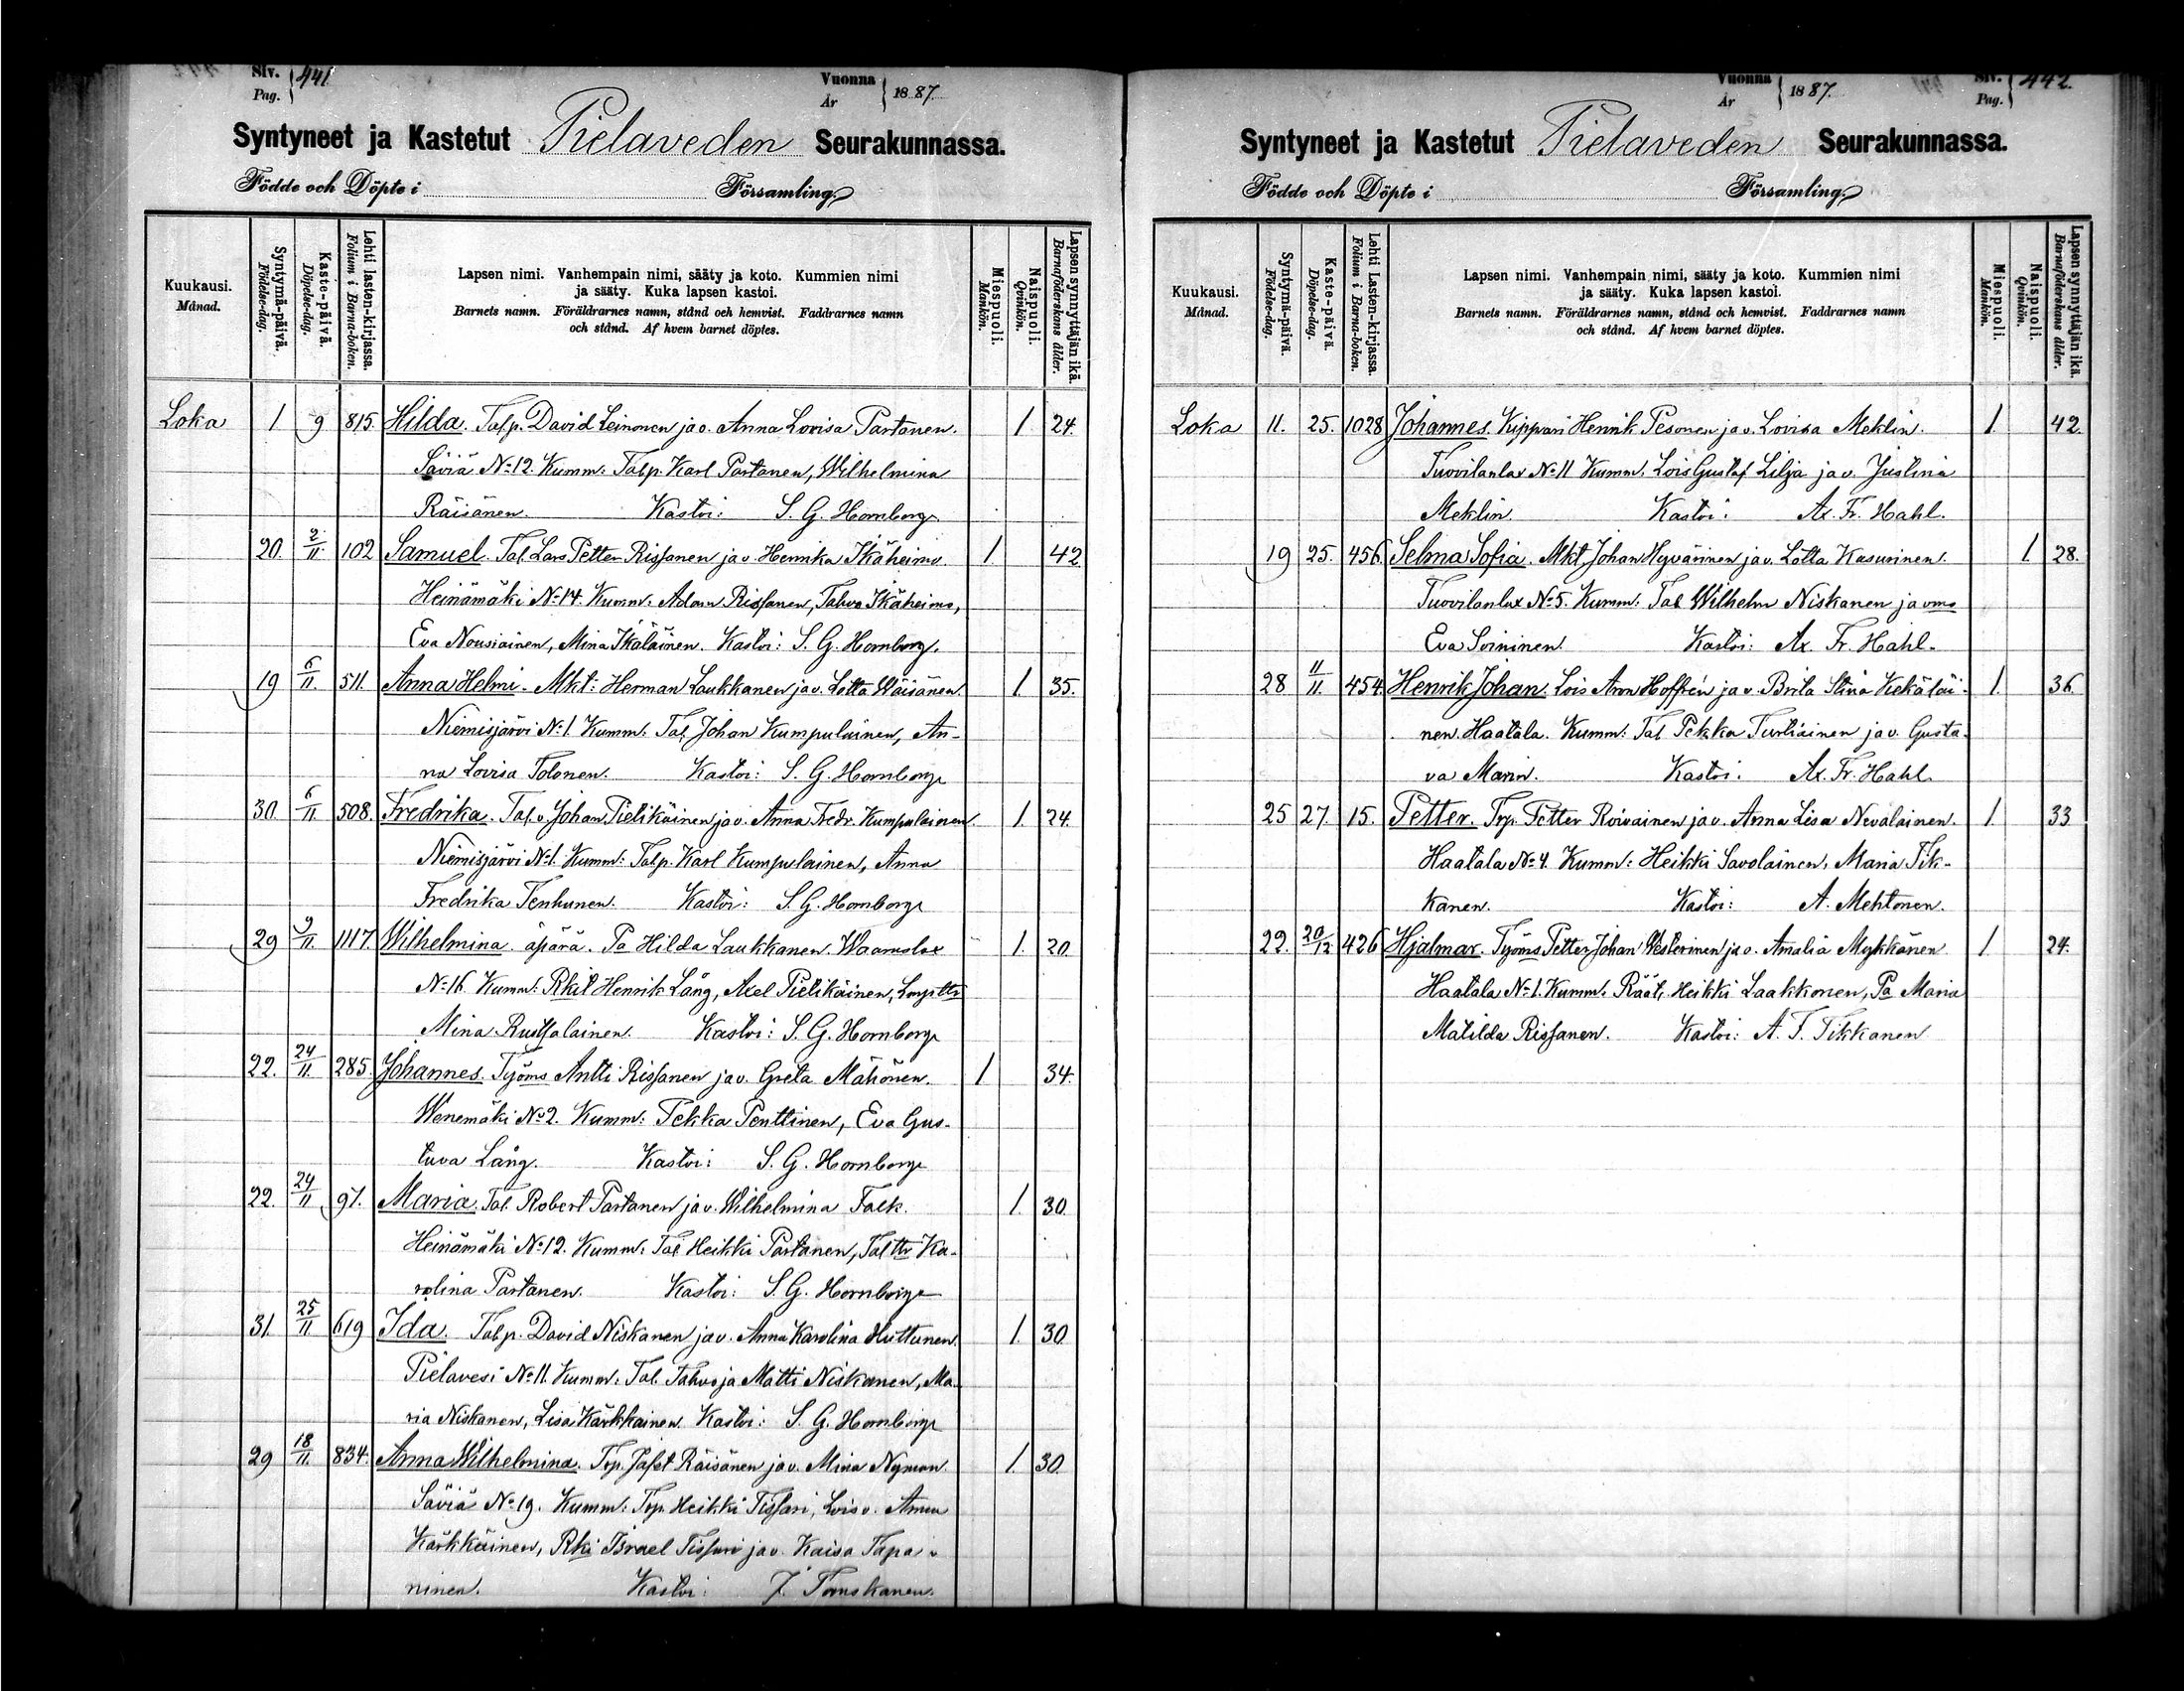 Siv. 441
Pag.
Vuonna 1887.
År
Syntyneet ja Kastetut Pielaveden Seurakunnassa.
Födde och Döpte i Församling.
Kuukausi.
Månad.
Syntymä-päivä.
Födelse-dag.
Kaste-päivä.
Döpelse-dag.
Lehti lasten-kirjassa.
Folium i Barna-boken.
Lapsen nimi. Vanhempain nimi, sääty ja koto. Kummien nimi
ja sääty. Kuka lapsen kastoi.
Barnets namn. Föräldrarnes namn, stånd och hemvist. Faddrarnes namn
och stånd. Af hvem barnet döptes.
Miespuoli.
Mankön.
Naispuoli.
Qvinkön.
Lapsen synnyttäjän ikä.
Barnaföderskans ålder.
Loka 1 9 815 Hilda. Talp. David Leinonen ja v. Anna Lovisa Partanen. 1 24.
Säviä No 12. Kumm: Talp. Karl Partanen, Wilhelmina
Räisänen. Kastoi: S. G. Hornborg.
20. 2/11. 102 Samuel. Tal. Lars Petter Rissanen ja v. Henrika Ikäheimo. 1. 42
Heinämäki No 14. Kumm: Adam Rissanen, Tahvo Ikäheimo,
Eva Nousiainen, Mina Ikäläinen. Kastoi: S. G. Hornborg.
19 6/11. 511. Anna Helmi. Mkt: Herman Laukkanen ja v. Lotta Wäisänen. 1. 35.
Niemisjärvi No 1. Kumm: Tal. Johan Kumpulainen, An-
na Lovisa Tolonen. Kastoi: S. G. Hornborg
30. 6/11. 508. Fredrika. Tal. v. Johan Pielikäinen ja v. Anna Fredr. Kumpulainen. 1. 24.
Niemisjärvi No 1. Kumm: Talp. Karl Kumpulainen, Anna
Fredrika Tenhunen. Kastoi: S. G. Hornborg
29 9/11. 1117. Wilhelmina. äpärä. Pa Hilda Laukkanen. 1. 20.
No 16. Kumm: Rkit Henrik Lång, Axel Pielikäinen,
Mina Kastoi: S. G. Hornborg
22. 24/11. 285. Johannes. Työms Antti Rissanen ja v. Greta Mähönen. 1. 34.
Wenemäki No 2. Kumm: Pekka Penttinen, Eva Gus-
tava Lång. Kastoi: S. G. Hornborg
22. 24/11 97. Maria. Tal. Robert Partanen ja v. Wilhelmina Falk. 1. 30.
Heinämäki No 12. Kumm: Tal Heikki Partanen, Tal ttr Ka-
rolina Partanen. Kastoi: S. G. Hornborg
31. 25/11 619 Ida. Talp. David Niskanen ja v. Anna Karolina Huttunen. 1. 30
Pielavesi No 11. Kumm: Tal. Tahvo ja Matti Niskanen, Ma-
ria Niskanen, Lisa Kärkkainen. Kastoi: S. G. Hornborg
29 18/11. 834. Anna Wilhelmina. Trp. Räisänen ja v. Mina Nyman. 1. 30.
Säviä No 19. Kumm: Trp. Heikki Tissari, Lois v. Anna
Kärkkäinen, Rki Israel Tissari ja v. Kaisa Tapa-
ninen. Kastoi: J.
Vuonna 1887.
År
Siv. 442.
Pag.
Syntyneet ja Kastetut Pielaveden Seurakunnassa.
Födde och Döpte i Församling.
Kuukausi.
Månad.
Syntymä-päivä.
Födelse-dag.
Kaste-päivä.
Döpelse-dag.
Lehti Lasten-kirjassa.
Folium i Barna-boken.
Lapsen nimi. Vanhempain nimi, sääty ja koto. Kummien nimi
ja sääty. Kuka lapsen kastoi.
Barnets namn. Föräldrarnes namn, stånd och hemvist. Faddrarnes namn
och stånd. Af hvem barnet döptes.
Miespuoli.
Mankön.
Naispuoli.
Qvinkön.
Lapsen synnyttäjän ikä.
Barnaföderskans ålder.
Loka 11. 25. 1028 Johannes. Kippari Henrik Pesonen ja v. Lovisa Meklin. 1. 42.
Tuovilanlax No 11 Kumm: Lois Gustaf Lilja ja v. Justina
Meklin. Kastoi: Ax. Fr. Hahl.
19 25. 456. Selma Sofia. Mkt Johan Hyvärinen ja v. Lotta Kasurinen. 1. 28.
Tuovilanlax No 5. Kumm: Tal Wilhelm Niskanen ja vmo
Eva Soininen. Kastoi: Ax. Fr. Hahl.
28 11/11. 454. Henrik Johan. Lois Aron Hoffrén ja v. Brita Stina Kekäläi- 1. 36.
nen. Haatala. Kumm: Tal Pekka Turtiainen ja v. Gusta-
va Marin. Kastoi. Ax. Fr. Hahl.
25 27. 15. Petter. Trp. Petter Roivainen ja v. Anna Lisa Nevalainen. 1. 33
Haatala No 4. Kumm: Heikki Savolainen, Maria Tik-
kanen. Kastoi: A. Mehtonen.
22. 20/12 426 Hjalmar. Työms Petter Johan Westerinen ja v. Amalia Mykkänen 1 24.
Haatala No 1. Kumm: Räät. Heikki Laakkonen, Pa Maria
Matilda Rissanen. Kastoi: A. F. Tikkanen